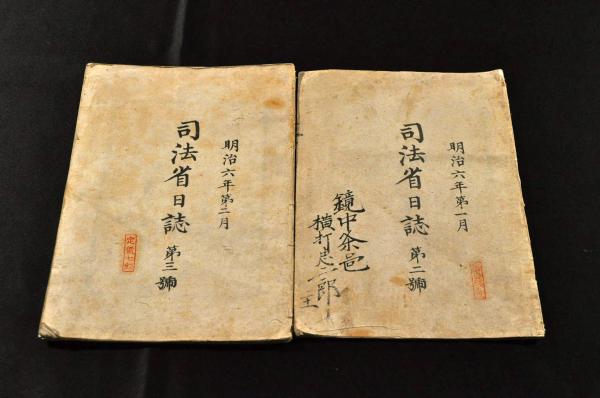 明治六年第一月
司法省日誌 第二號
鏡中条邑
横打忠一郎
主
明治六年第二月
司法省日誌 第三號
定價七匁